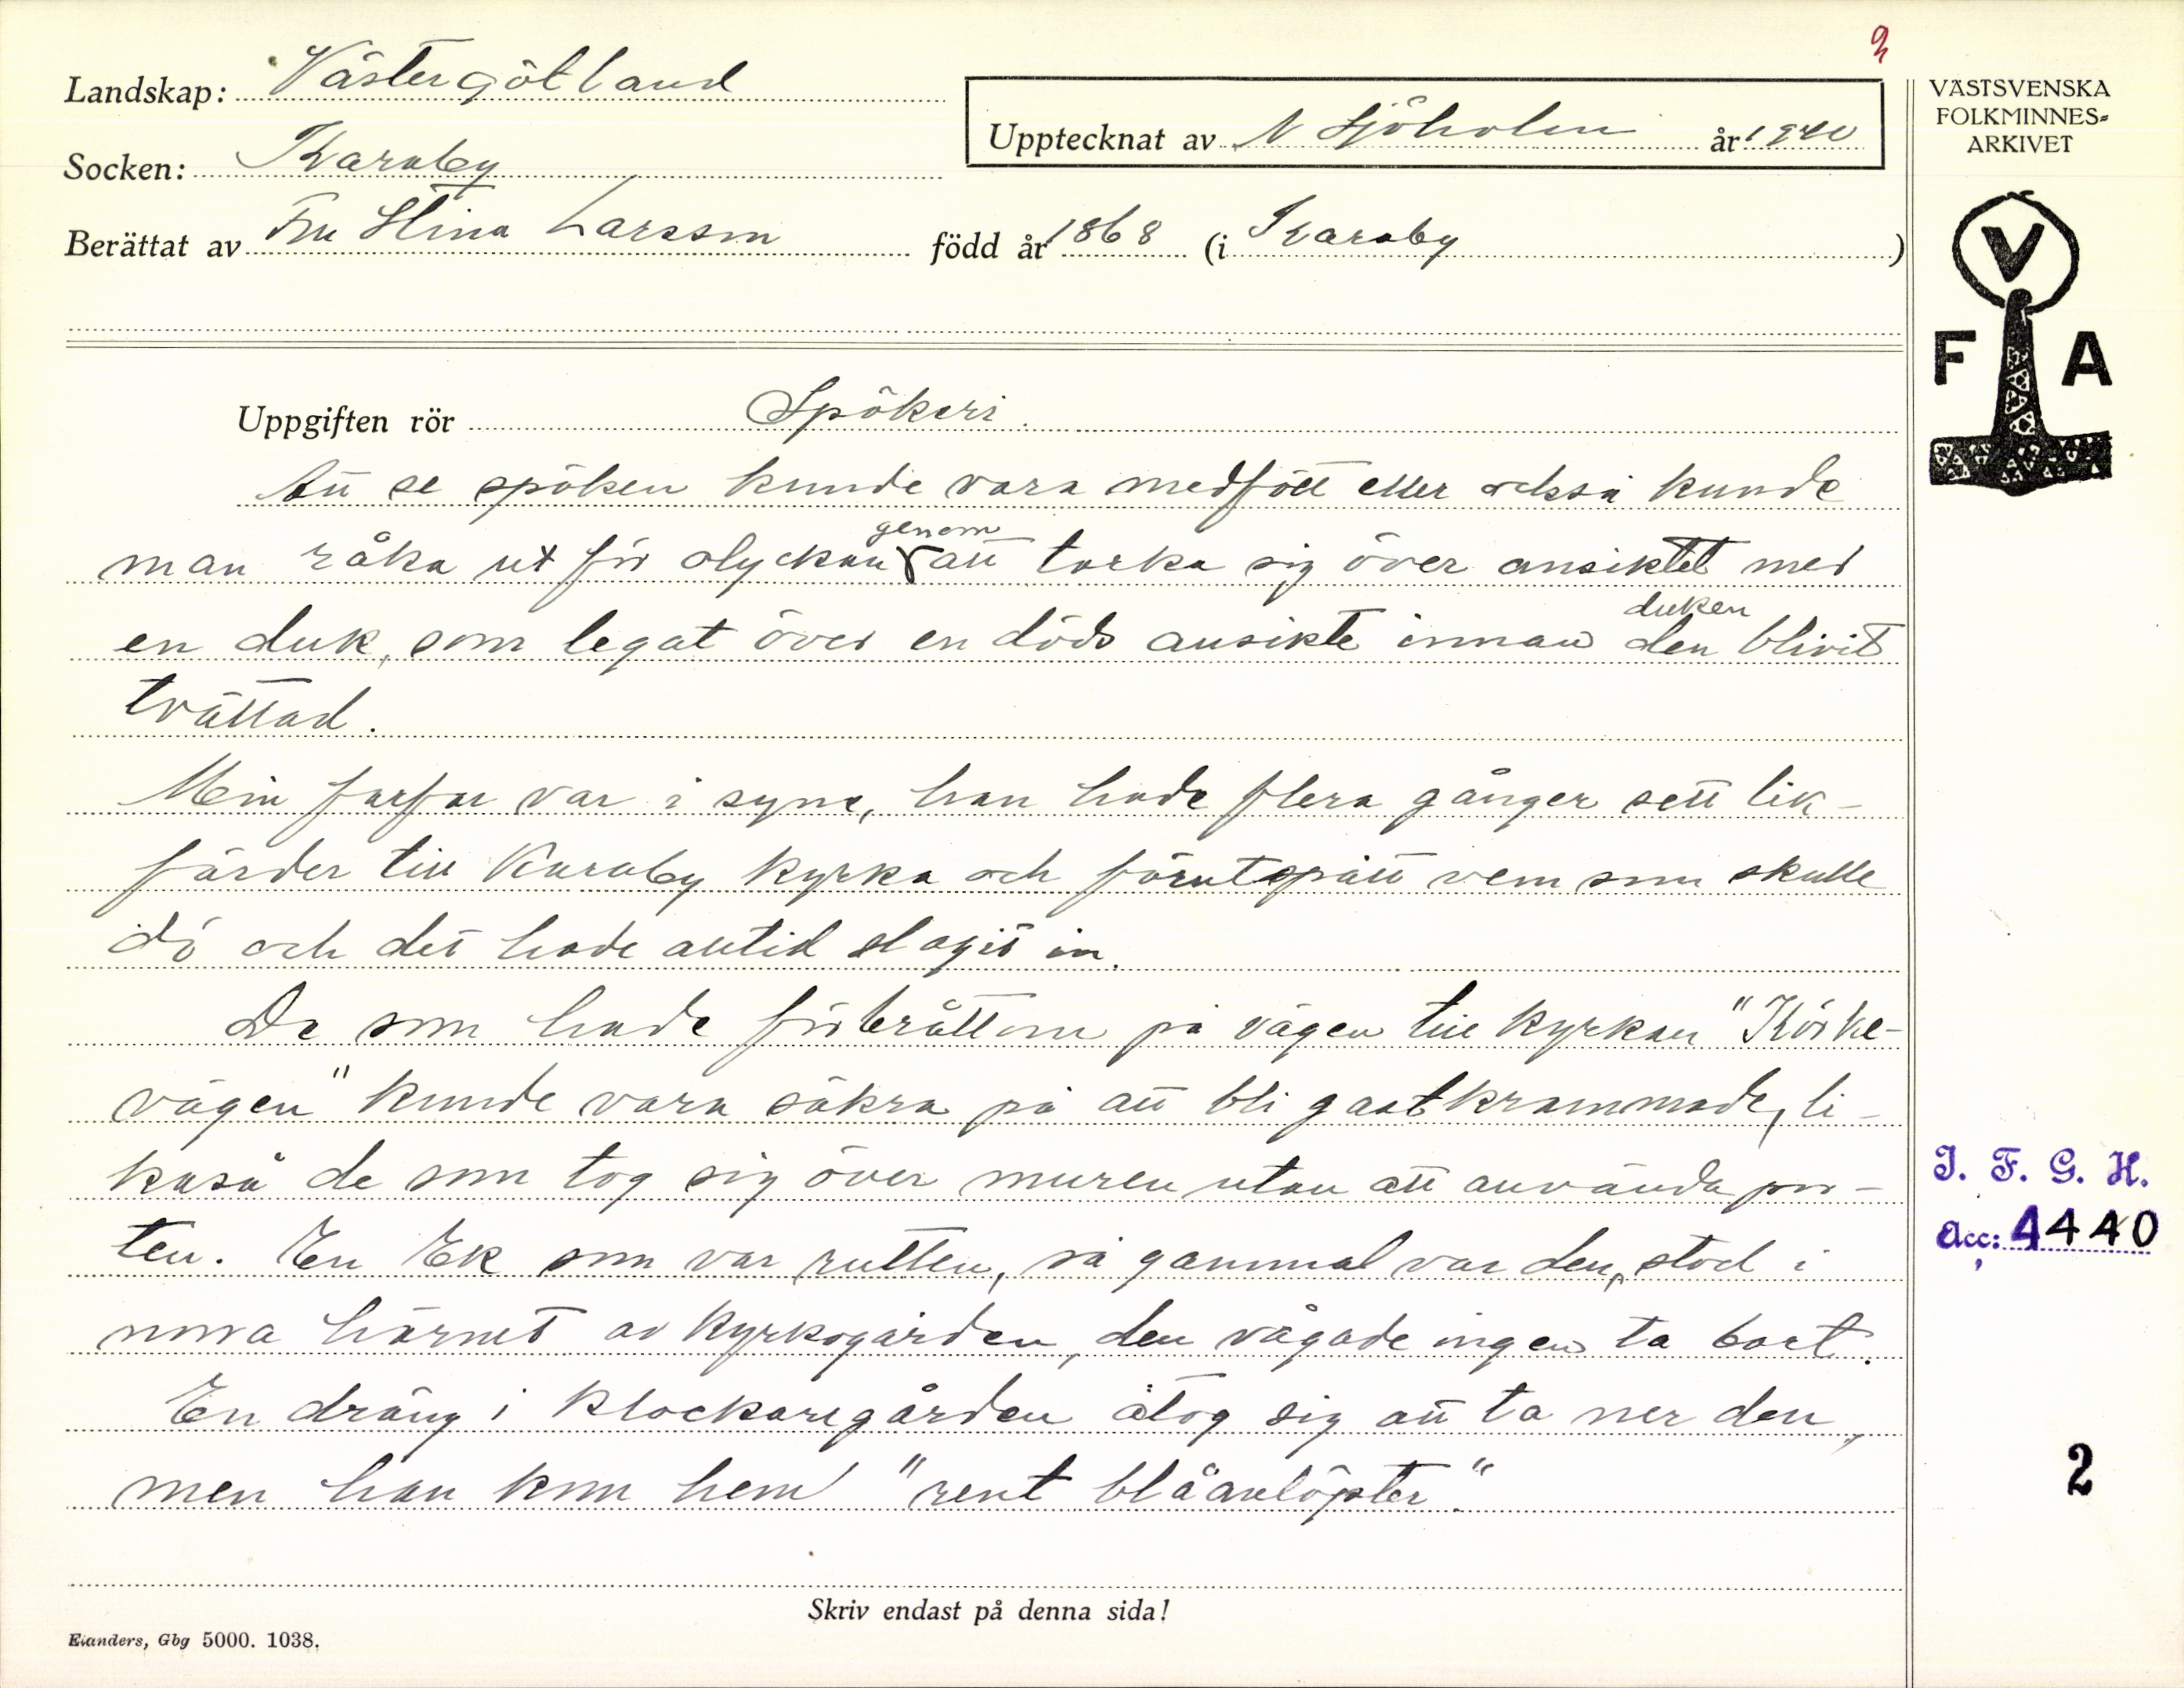 2
Landskap: Västergötland
Socken: Karaby
Berättat av Fru Stina Larsson född år 1868 (i Karaby)
Upptecknat av N Sjöholm år 1940
VÄSTSVENSKA
FOLKMINNES-
ARKIVET
V
F A
Uppgiften rör Spökeri.
Att se spöken kunde vara medfött eller också kunde
man råka ut för olyckan genom att torka sig över ansiktet med
en duk, som legat över en döds ansikte innan den duken blivit
tvättad.
Min farfar var i syne, han hade flera gånger sett lik-
färder till Karaby kyrka och förutspått vem som skulle
dö och det hade alltid slagit in.
De som hade förbråttom på vägen till kyrkan "Körke-
vägen" kunde vara säkra på att bli gastkrammade, li-
kaså de som tog sig över muren utan att använda por-
ten. En Ek som var rutten, så gammal var den, stod i
norra hörnet av kyrkogården, den vågade ingen ta bort.
En dräng i klockaregården åtog sig att ta ner den,
men han kom hem "rent blåanlöpter".
I. F. G. H.
Acc: 4440
2
Skriv endast på denna sida!
Elanders, Gbg 5000. 1038.